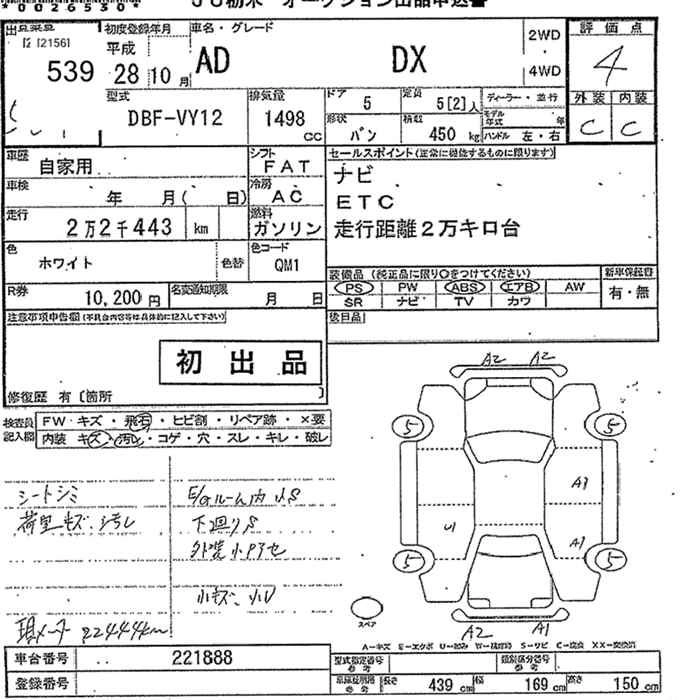 *0026530*
JU栃木 オークション出品申込書
[21561
539
初度登録年月
平成
28年10月
車名・グレード
AD DX
2WD
4WD
評価点
4
外装 内装
C C
型式
DBF-VY12
排気量
1498 CC
ドア 5
定員 5[2]人
形状 バン
積載 450 kg
ディーラー・並行
モデル年式 年
ハンドル 左・右
車歴 自家用
シフト FAT
車検 年 月( 日)
冷房 AC
走行 2万2千443 km
燃料 ガソリン
色 ホワイト
色替
色コード QM1
R券 10,200円
名変通知期限 月 日
セールスポイント(正常に機能するものに限ります)
ナビ
ETC
走行距離2万キロ台
装備品(純正品に限り○をつけてください)
PS PW ABS エアB AW
SR ナビ TV カワ
新車保証書
有・無
後日品
注意事項申告欄(不具合内容等は具体的に記入して下さい)
初出品
修復歴 有〔箇所 〕
検査員記入欄
FW キズ・飛石・ヒビ割・リペア跡・×要
内装 キズ・汚れ・コゲ・穴・スレ・キレ・破レ
シートシミ
荷室キズ、汚れ
E/Gルーム内小S
下廻りS
外装小Pアセ
小キズ、小U
現メーター 22444km
A2 A2
5 5
A1
U1 A1
5 5
スペア
A2 A1
A-キズ E-エクボ U-凹み W-補修跡 S-サビ C-腐食 XX-交換済
車台番号 221888
登録番号
型式指定番号 参考
類別区分番号 参考
車検証明用 参考 長さ 439 cm 幅 169 cm 高さ 150 cm